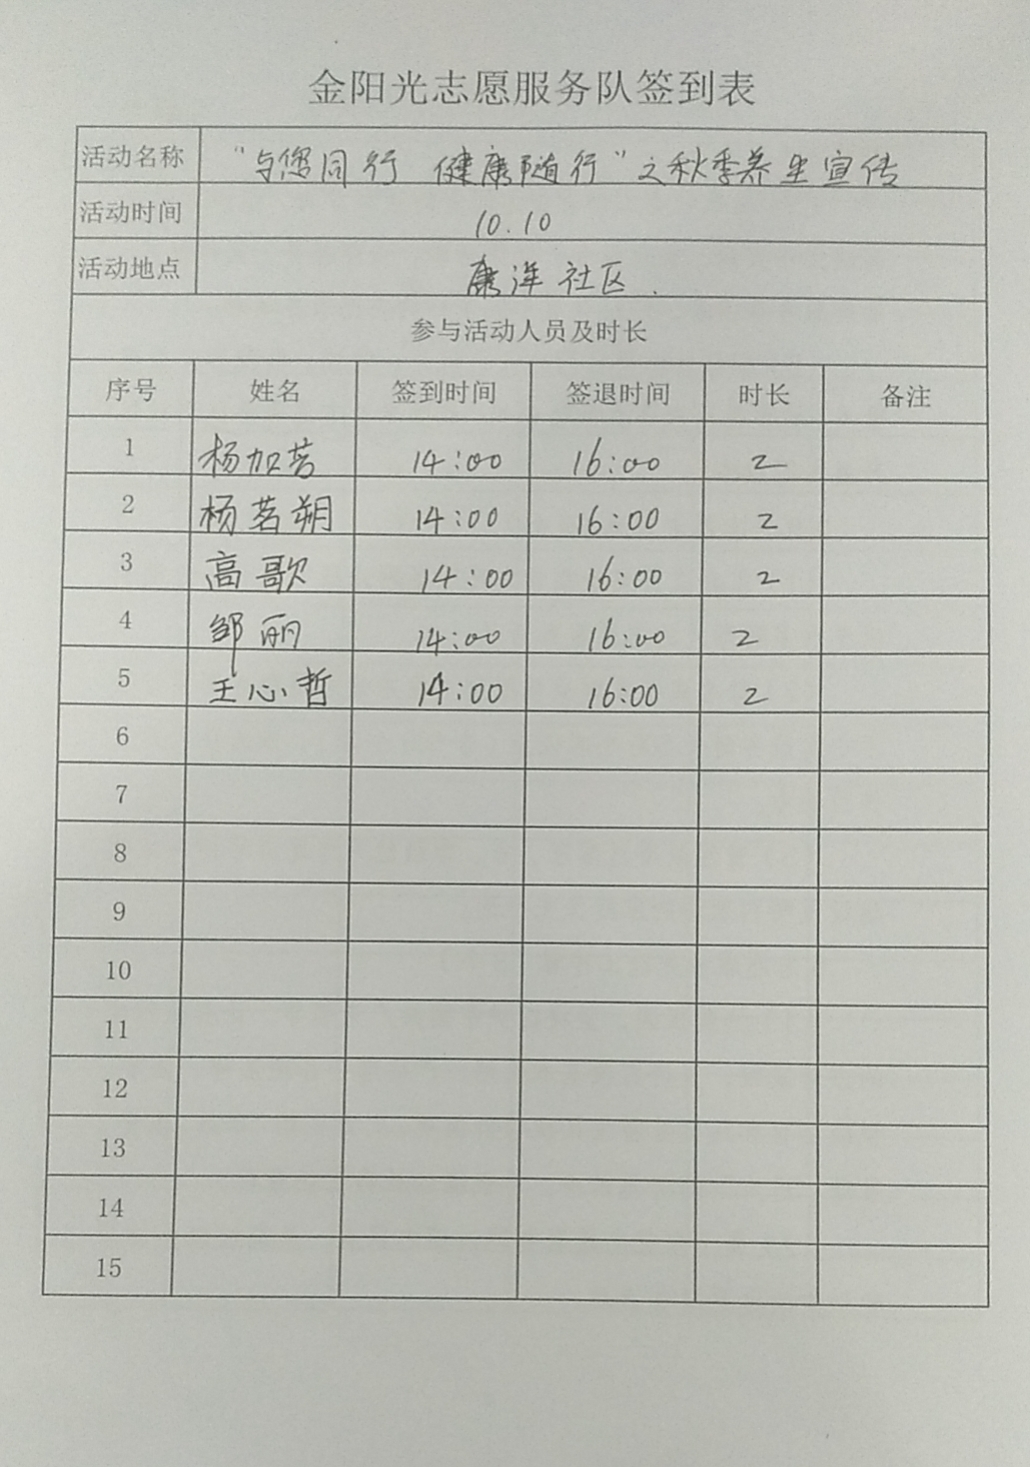 金阳光志愿服务队签到表
活动名称 “与您同行 健康随行”之秋季养生宣传
活动时间 10.10
活动地点 康洋社区.
参与活动人员及时长
序号 姓名 签到时间 签退时间 时长 备注
1 杨加 14:00 16:00 2
2 杨茗朔 14:00 16:00 2
3 高歌 14:00 16:00 2
4 邹丽 14:00 16:00 2
5 王心哲 14:00 16:00 2
6
7
8
9
10
11
12
13
14
15